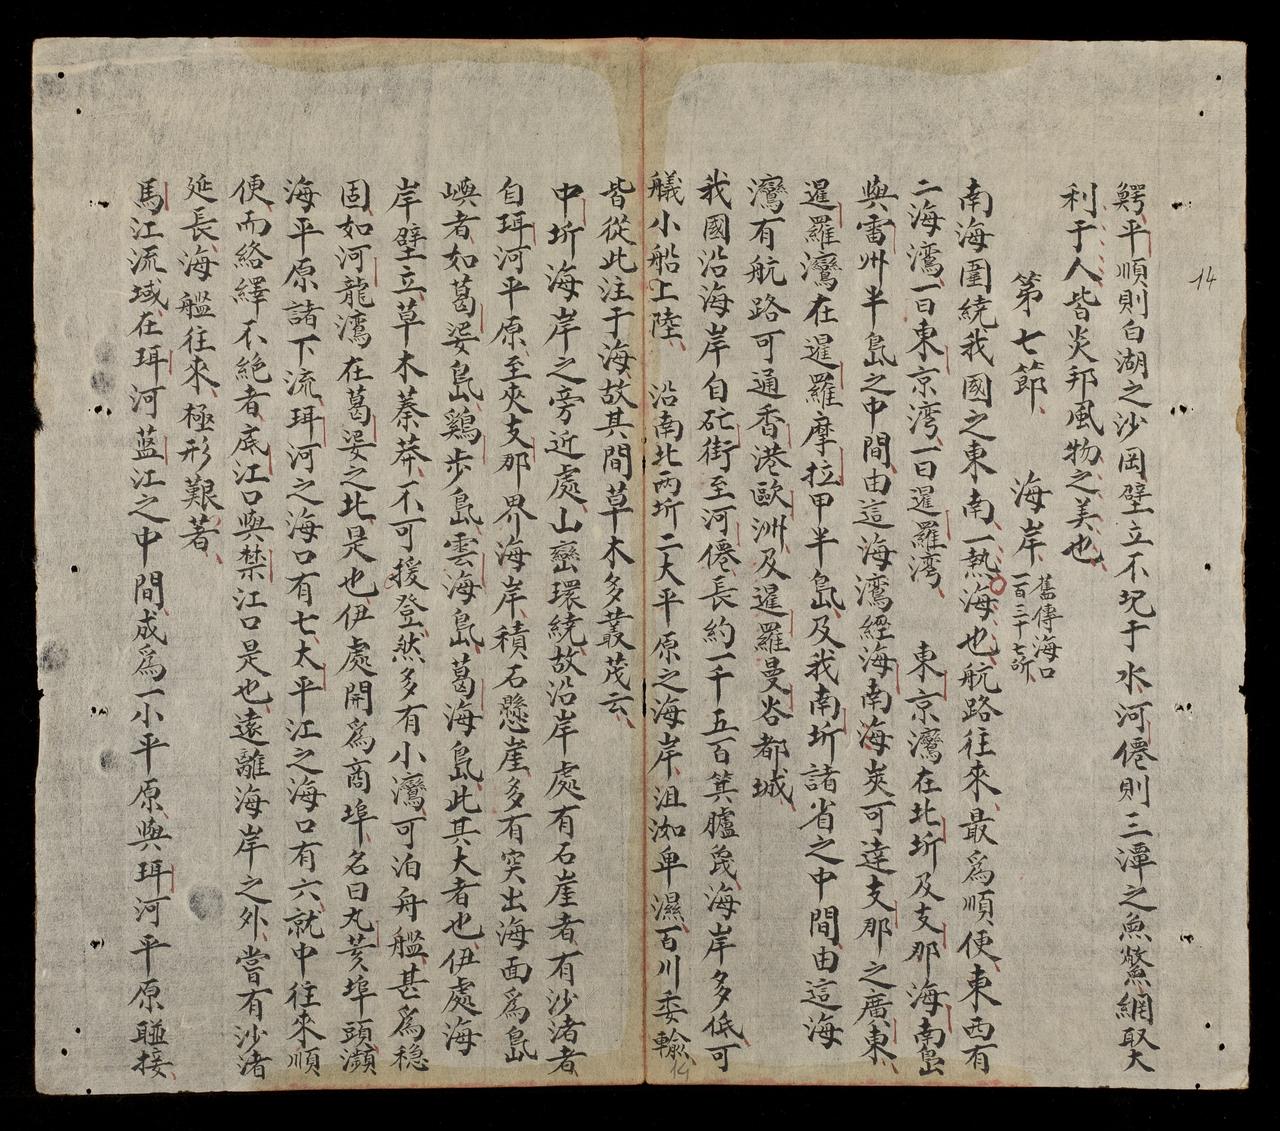 14
鰐平順則白湖之沙岡壁立不圮于水河僊則三潭之魚鱉網取大
利于人皆炎邦風物之美也
第七節 海岸 舊傳海口一百三十七所
南海圍繞我國之東南一熱海也航路往來最爲順便東西有
二海灣一曰東京湾一曰暹羅湾 東京灣在北圻及支那海南島
與雷州半島之中間由這海灣經海南海峽可達支那之廣東
暹羅灣在暹羅摩拉甲半島及我南圻諸省之中間由這海
灣有航路可通香港歐洲及暹羅曼谷都城
我國沿海岸自砿街至河僊長約一千五百箕臚𠼦海岸多低可
艤小船上陸 沿南北两圻二大平原之海岸沮洳卑濕百川委輸
皆從此注于海故其間草木多叢茂云
中圻海岸之旁近處山巒環繞故沿岸處有石崖者有沙渚者
自珥河平原至夾支那界海岸積石懸崖多有突出海面爲島
嶼者如葛婆島鷄步島雲海島葛海島此其大者也伊處海
岸壁立草木蓁莽不可援登然多有小灣可泊舟艦甚爲穏
固如河龍灣在葛婆之北是也伊處開爲商埠名曰丸䓑埠頭瀕
海平原諸下流珥河之海口有七太平江之海口有六就中往來順
便而絡繹不絶者底江口與禁江口是也遠離海岸之外嘗有沙渚
延長海艦往來極形艱著
馬江流域在珥河藍江之中間成爲一小平原與珥河平原聯接
14